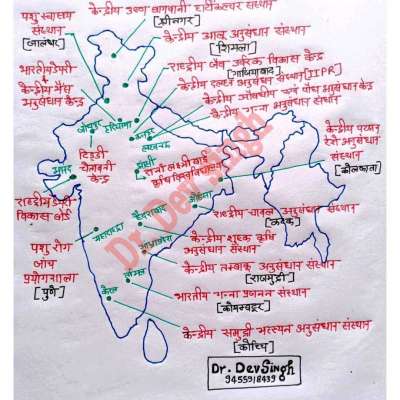 पशु स्वास्थ्य
संस्थान
[जालंधर]
केन्द्रीय उष्ण बागवानी हार्टिकल्चर संस्थान
[श्रीनगर]
केन्द्रीय आलू अनुसंधान संस्थान
[शिमला]
राष्ट्रीय जैव उर्वरक विकास केन्द्र
[गाजियाबाद]
केन्द्रीय दलहन अनुसंधान संस्थान [IIPR]
केन्द्रीय औषधीय एवं पौधा अनुसंधान केन्द्र
केन्द्रीय गन्ना अनुसंधान संस्थान
भारतीय डेयरी
+
केन्द्रीय भैंस
अनुसंधान केन्द्र
जोधपुर
हरियाणा
कानपुर
लखनऊ
टिड्डी
चेतावनी
केन्द्र
झाँसी
रानी लक्ष्मी बाई
कृषि विश्वविद्यालय
केन्द्रीय पटसन
रेशे अनुसंधान
संस्थान
[कोलकाता]
राष्ट्रीय डेयरी
विकास बोर्ड
महाराष्ट्र
हैदराबाद
राष्ट्रीय चावल अनुसंधान संस्थान
[कटक]
केन्द्रीय शुष्क कृषि
अनुसंधान संस्थान
पशु रोग
जांच
प्रयोगशाला
[पुणे]
केन्द्रीय तम्बाकू अनुसंधान संस्थान
[राजमुंद्री]
भारतीय गन्ना प्रजनन संस्थान
[कोयम्बटूर]
केरल
केन्द्रीय समुद्री मत्स्यन अनुसंधान संस्थान
[कोच्चि]
Dr. DevSingh
9455918439
Dr. DevSingh